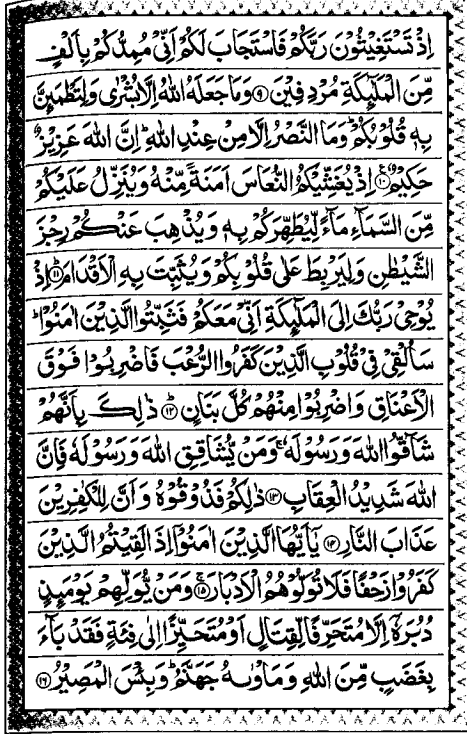 اِذْ تَسْتَغِیْثُوْنَ رَبَّكُمْ فَاسْتَجَابَ لَكُمْ اَنِّیْ مُمِدُّكُمْ بِاَلْفٍ
مِّنَ الْمَلٰٓىِٕكَةِ مُرْدِفِیْنَ ۝۹ وَمَا جَعَلَهُ اللهُ اِلَّا بُشْرٰی وَلِتَطْمَىِٕنَّ
بِهٖ قُلُوْبُكُمْ ۚ وَمَا النَّصْرُ اِلَّا مِنْ عِنْدِ اللهِ ؕ اِنَّ اللهَ عَزِیْزٌ
حَكِیْمٌ ۝۱۰ اِذْ یُغَشِّیْكُمُ النُّعَاسَ اَمَنَةً مِّنْهُ وَیُنَزِّلُ عَلَیْكُمْ
مِّنَ السَّمَآءِ مَآءً لِّیُطَهِّرَكُمْ بِهٖ وَیُذْهِبَ عَنْكُمْ رِجْزَ
الشَّیْطٰنِ وَلِیَرْبِطَ عَلٰی قُلُوْبِكُمْ وَیُثَبِّتَ بِهِ الْاَقْدَامَ ۝۱۱ اِذْ
یُوْحِیْ رَبُّكَ اِلَی الْمَلٰٓىِٕكَةِ اَنِّیْ مَعَكُمْ فَثَبِّتُوا الَّذِیْنَ اٰمَنُوْا ؕ
سَاُلْقِیْ فِیْ قُلُوْبِ الَّذِیْنَ كَفَرُوا الرُّعْبَ فَاضْرِبُوْا فَوْقَ
الْاَعْنَاقِ وَاضْرِبُوْا مِنْهُمْ كُلَّ بَنَانٍ ۝۱۲ ذٰلِكَ بِاَنَّهُمْ
شَآقُّوا اللهَ وَرَسُوْلَهٗ ۚ وَمَنْ یُّشَاقِقِ اللهَ وَرَسُوْلَهٗ فَاِنَّ
اللهَ شَدِیْدُ الْعِقَابِ ۝۱۳ ذٰلِكُمْ فَذُوْقُوْهُ وَاَنَّ لِلْكٰفِرِیْنَ
عَذَابَ النَّارِ ۝۱۴ یٰۤاَیُّهَا الَّذِیْنَ اٰمَنُوْۤا اِذَا لَقِیْتُمُ الَّذِیْنَ
كَفَرُوْا زَحْفًا فَلَا تُوَلُّوْهُمُ الْاَدْبَارَ ۝۱۵ وَمَنْ یُّوَلِّهِمْ یَوْمَىِٕذٍ
دُبُرَهٗۤ اِلَّا مُتَحَرِّفًا لِّقِتَالٍ اَوْ مُتَحَیِّزًا اِلٰی فِئَةٍ فَقَدْ بَآءَ
بِغَضَبٍ مِّنَ اللهِ وَمَاْوٰىهُ جَهَنَّمُ ؕ وَبِئْسَ الْمَصِیْرُ ۝۱۶